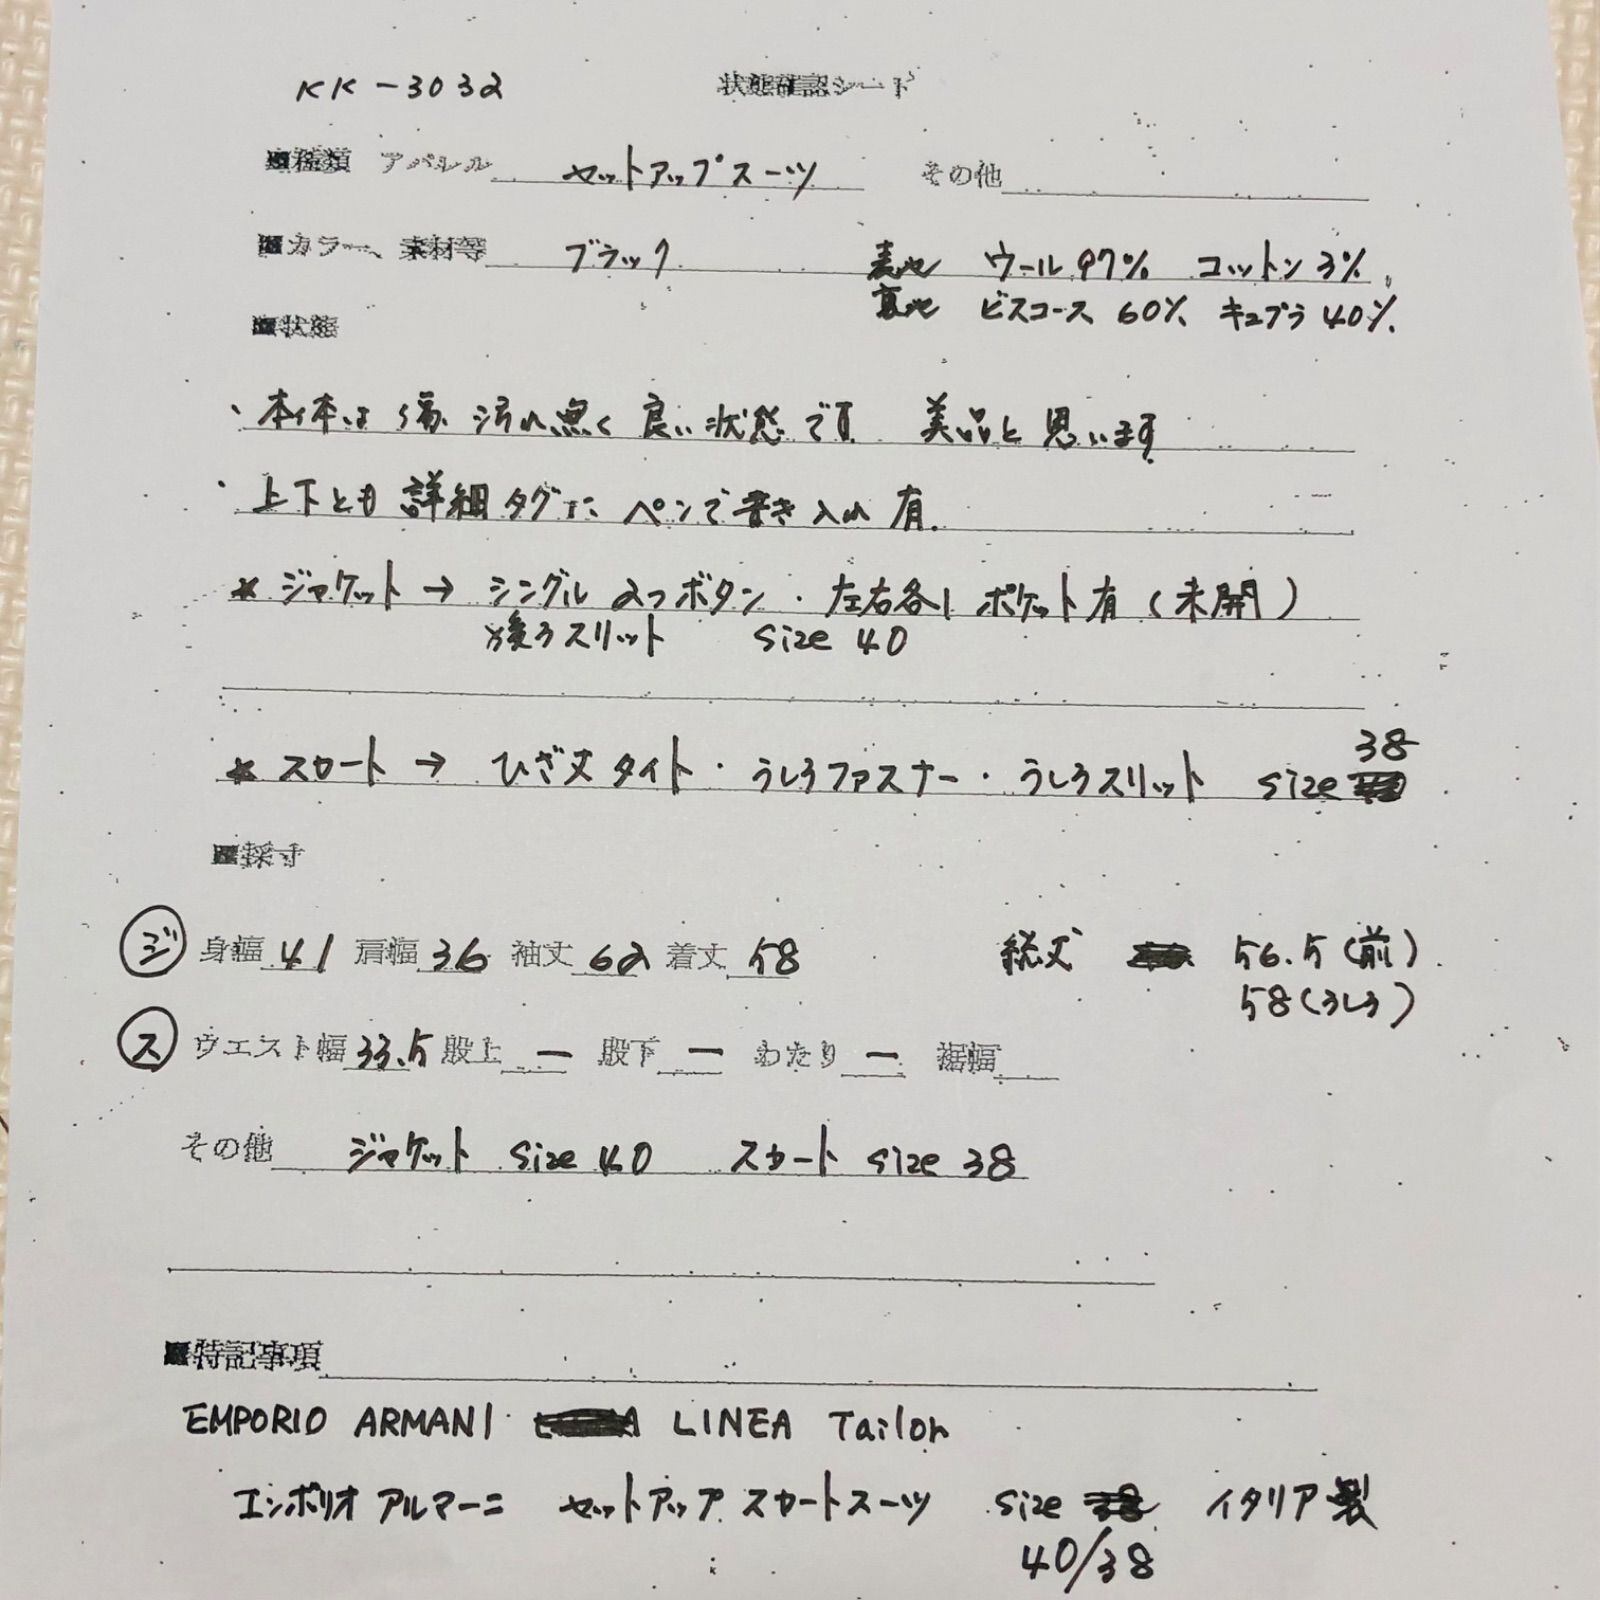 KK-3032 状態確認シート
■種類 アパレル セットアップスーツ その他
■カラー、素材等 ブラック 表地 ウール97% コットン3%
裏地 ビスコース60% キュプラ40%
■状態
・本体は傷汚れ無く良い状態です 美品と思います
・上下とも詳細タグにペンで書き入れ有.
* ジャケット → シングル 2つボタン・左右各1ポケット有(未開)
後ろスリット size 40
38
* スカート → ひざ丈タイト・うしろファスナー・うしろスリット size
■採寸
ジ 身幅 41 肩幅 36 袖丈 62 着丈 58 総丈 56.5(前)
58(うしろ)
ス ウエスト幅 33.5 股上 ー 股下 ー わたり ー 裾幅
その他 ジャケット size 40 スカート size 38
■特記事項
EMPORIO ARMANI LINEA Tailor
エンポリオ アルマーニ セットアップ スカートスーツ size イタリア製
40/38